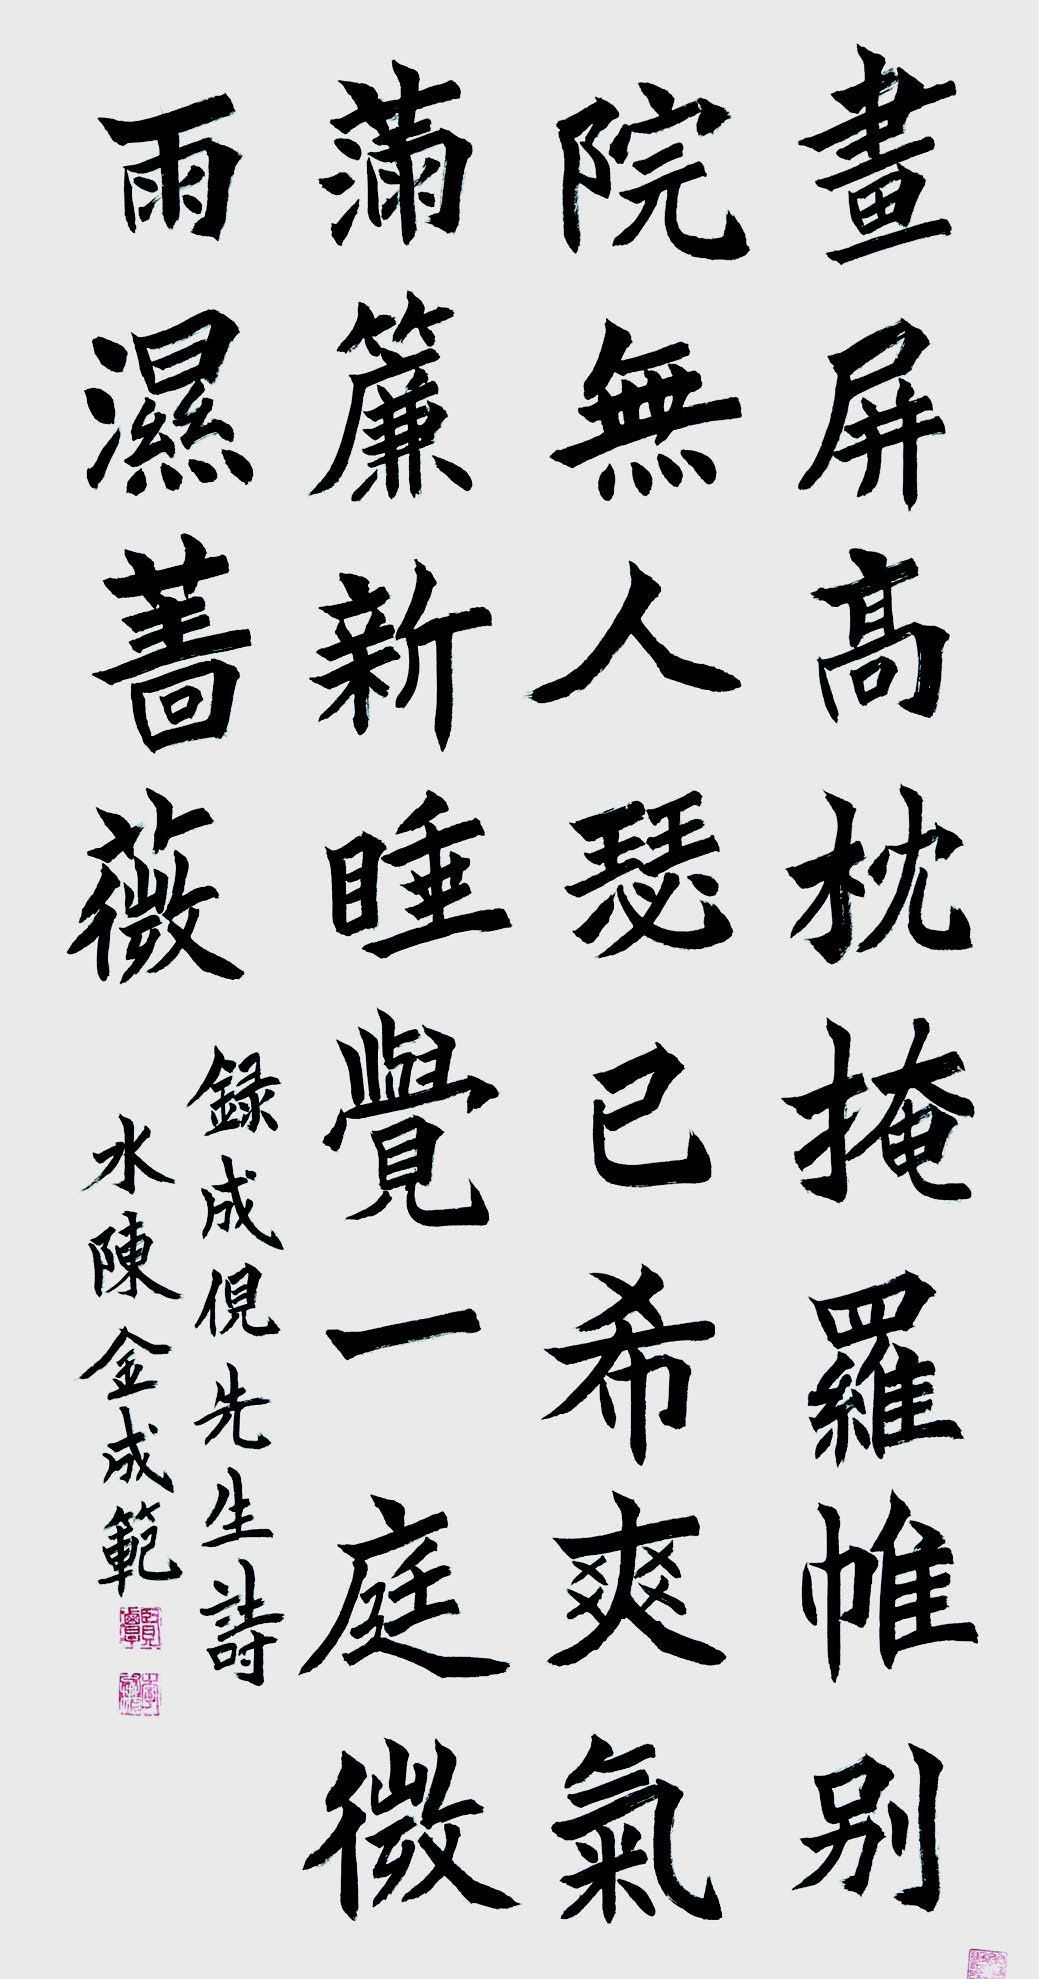 畫屏高枕掩羅帷别
院無人瑟已希爽氣
滿簾新睡覺一庭微
雨濕薔薇
録成俔先生詩
水陳金成範